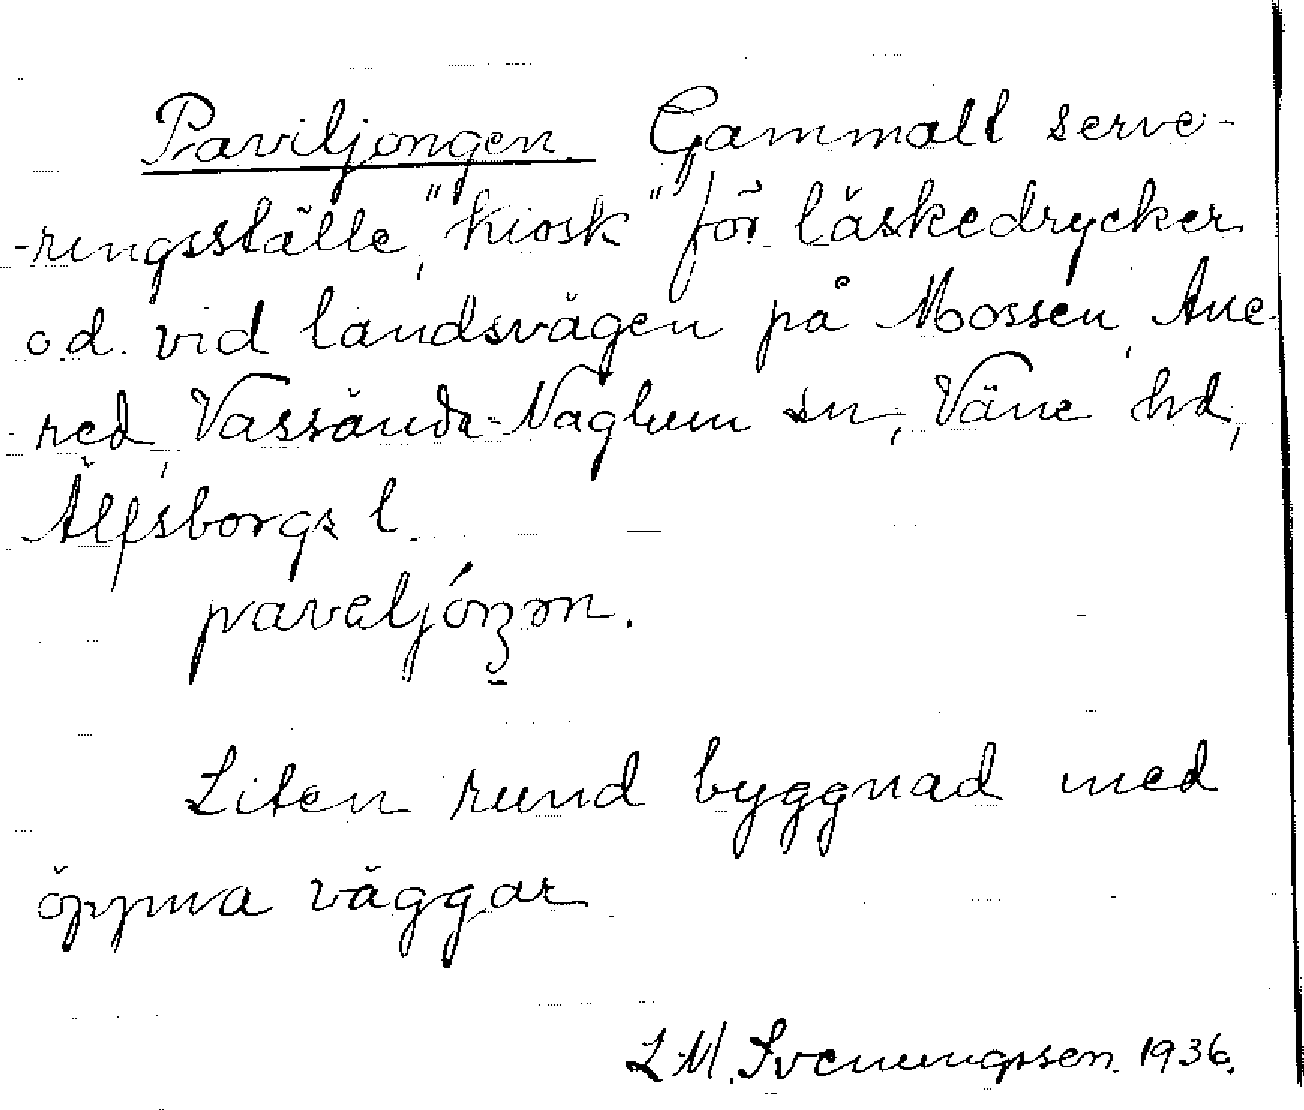 Paviljongen. Gammalt serve-
-ringsställe, "kiosk" för läskedrycker
o.d. vid landsvägen på Mossen, Ane-
red, Vassända-Naglum sn, Väne hd,
Älfsborgs l.
paveljóŋən.
Liten rund byggnad med
öppna väggar
L.M. Svenungsson. 1936.